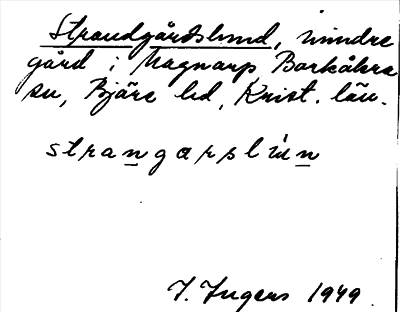 Strandgårdslund, mindre
gård i Magnarp Barkåkra
sn, Bjäre hd, Krist. län.
strangarslun
I. Ingers 1949.